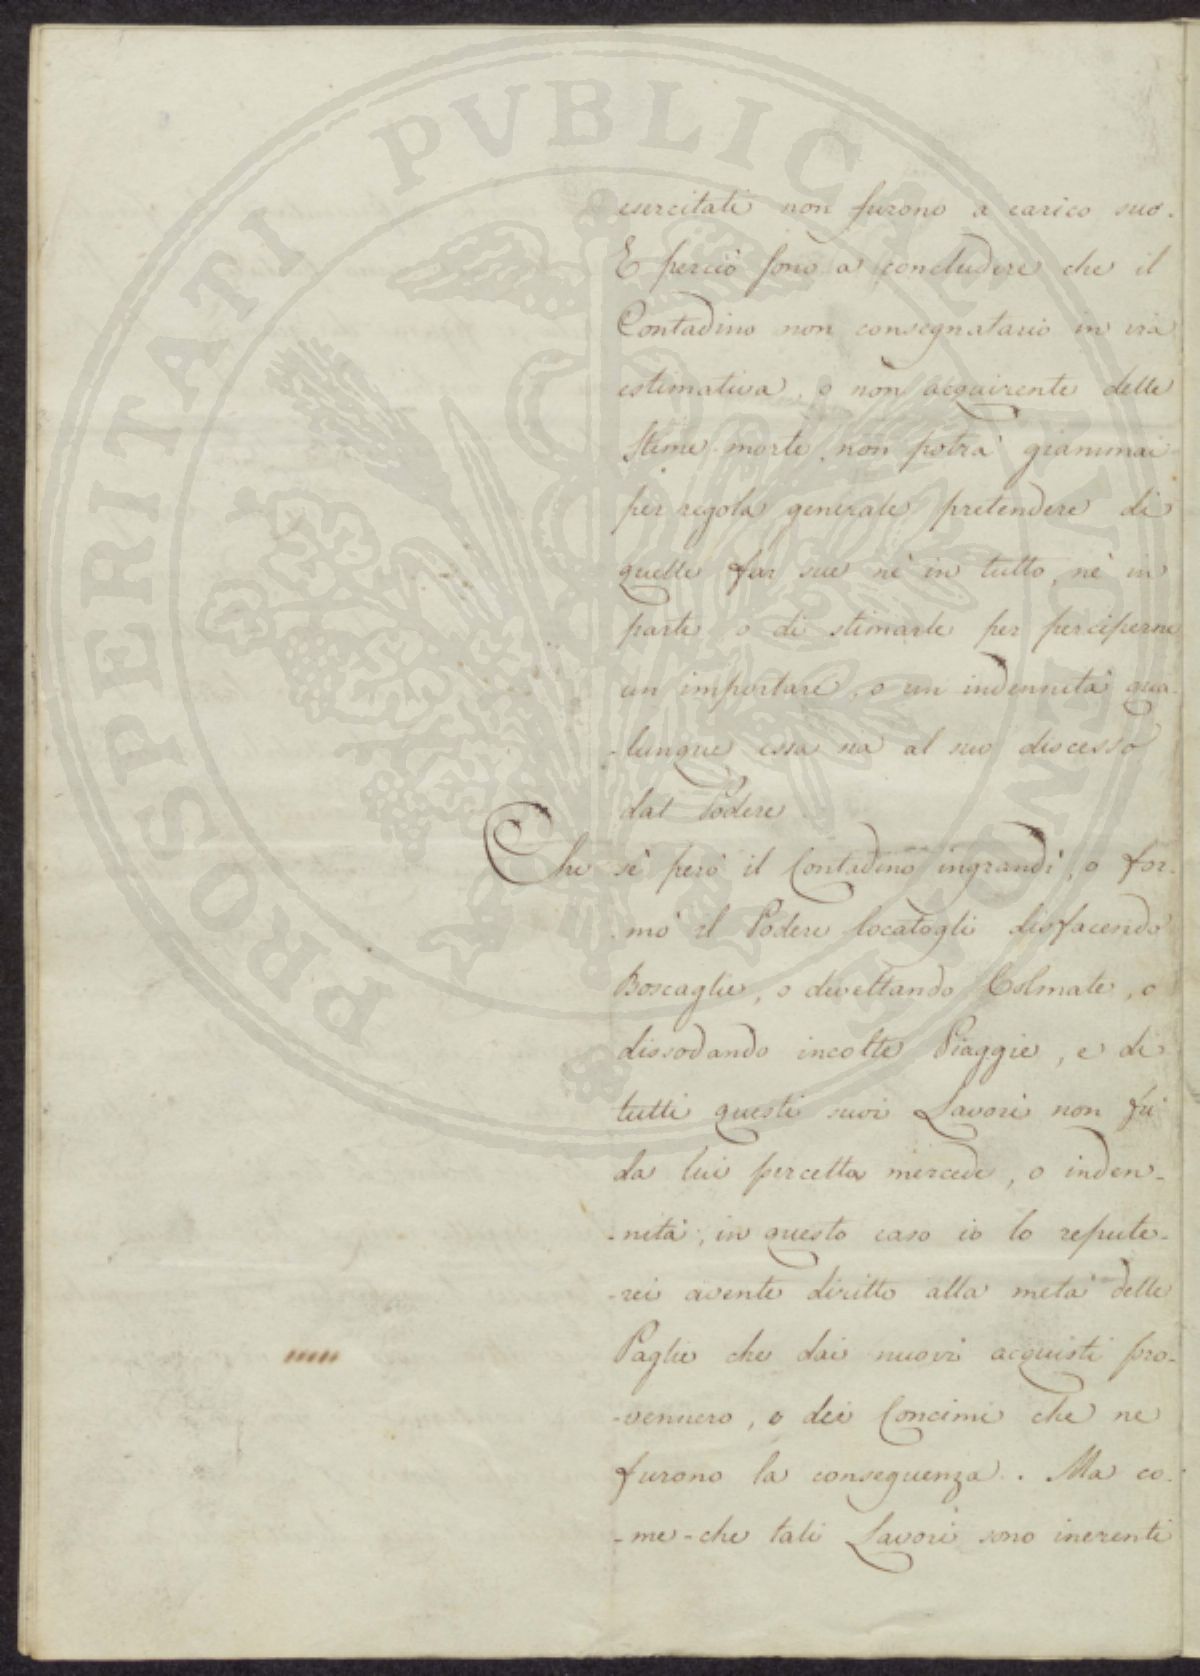 PROSPERITATI PVBLICAE AVGENDAE
esercitati non furono a carico suo.
E perciò sono a concludere che il
Contadino non consegnatario in via
estimativa, o non acquirente delle
Stime morte, non potrà giammai
per regola generale pretendere di
quelle far sue nè in tutto, nè in
parte, o di stimarle per perciperne
un importare, o un indennità qua-
-lunque essa sia al suo discesso
dal Podere.
Che sè però il Contadino ingrandì, o for-
-mò il Podere locatogli disfacendo
Boscaglie, o divettando Colmate, o
dissodando incolte Piaggie, e di
tutti questi suoi Lavori non fù
da lui percetta mercede, o inden-
-nità, in questo caso io lo repute-
-rei avente diritto alla metà delle
Paglie che dai nuovi acquisti pro-
-vennero, o dei Concimi che ne
furono la conseguenza. Ma co-
-me-che tali Lavori sono inerenti